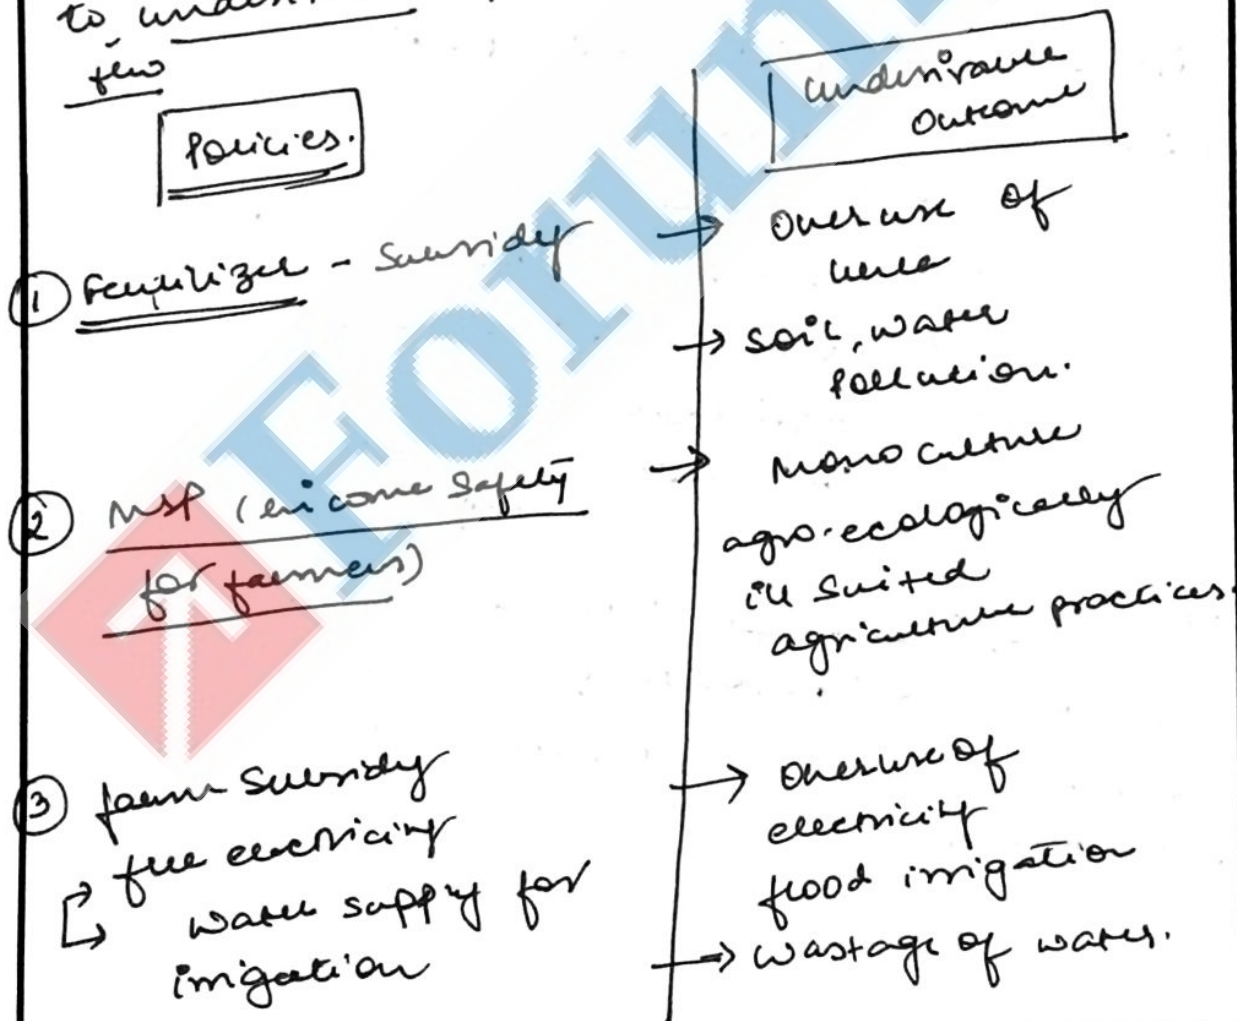 to
few
Policies.
Undesirable
Outcome
① Fertilizer - Subsidy
→ Overuse of
urea
→ soil, water
Pollution.
② MSP (income Safety
for farmers)
→ Mono culture
agro-ecologically
ill suited
agriculture practices.
③ farm Subsidy
free electricity
water supply for
irrigation
→ Overuse of
electricity
flood irrigation
→ wastage of water.
Forum